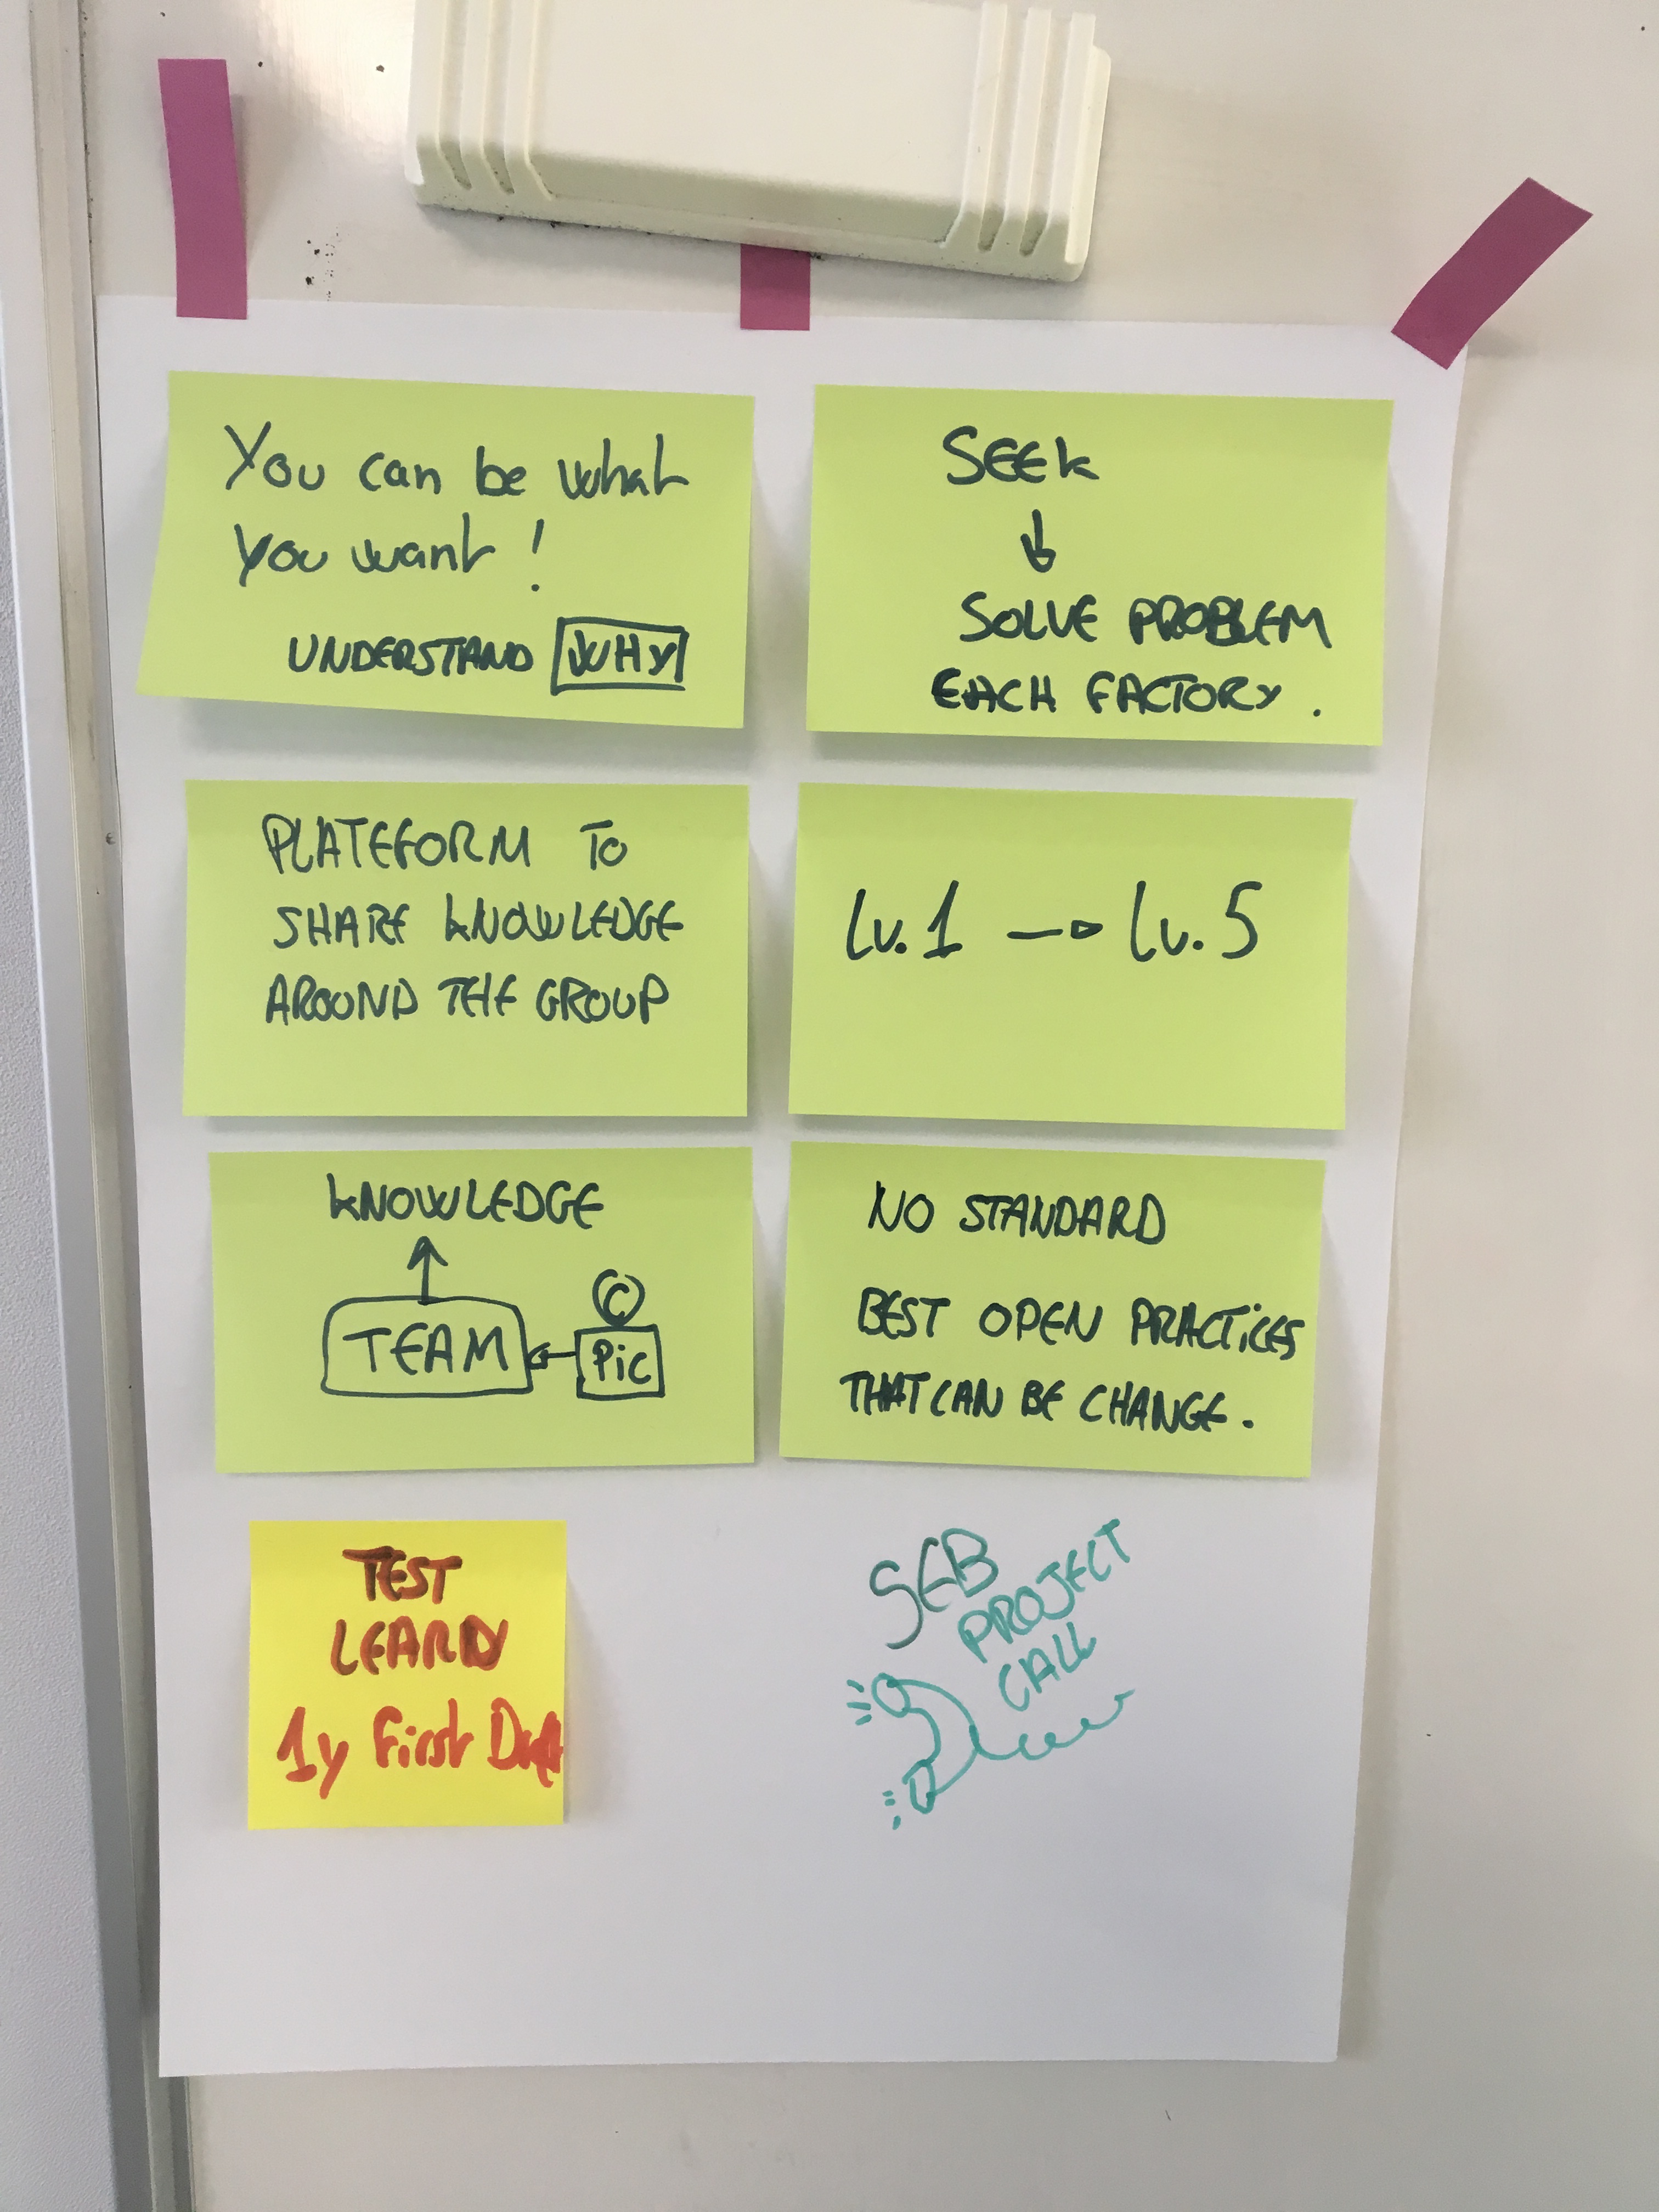 You can be what
you want !
UNDERSTAND WHY
SEEK
SOLVE PROBLEM
EACH FACTORY .
PLATEFORM TO
SHARE KNOWLEDGE
AROUND THE GROUP
Lv.1 → Lv.5
KNOWLEDGE
C
TEAM ← Pic
NO STANDARD
BEST OPEN PRACTICES
THAT CAN BE CHANGE.
TEST
LEARN
1y First Draft
SEB
PROJECT
CALL